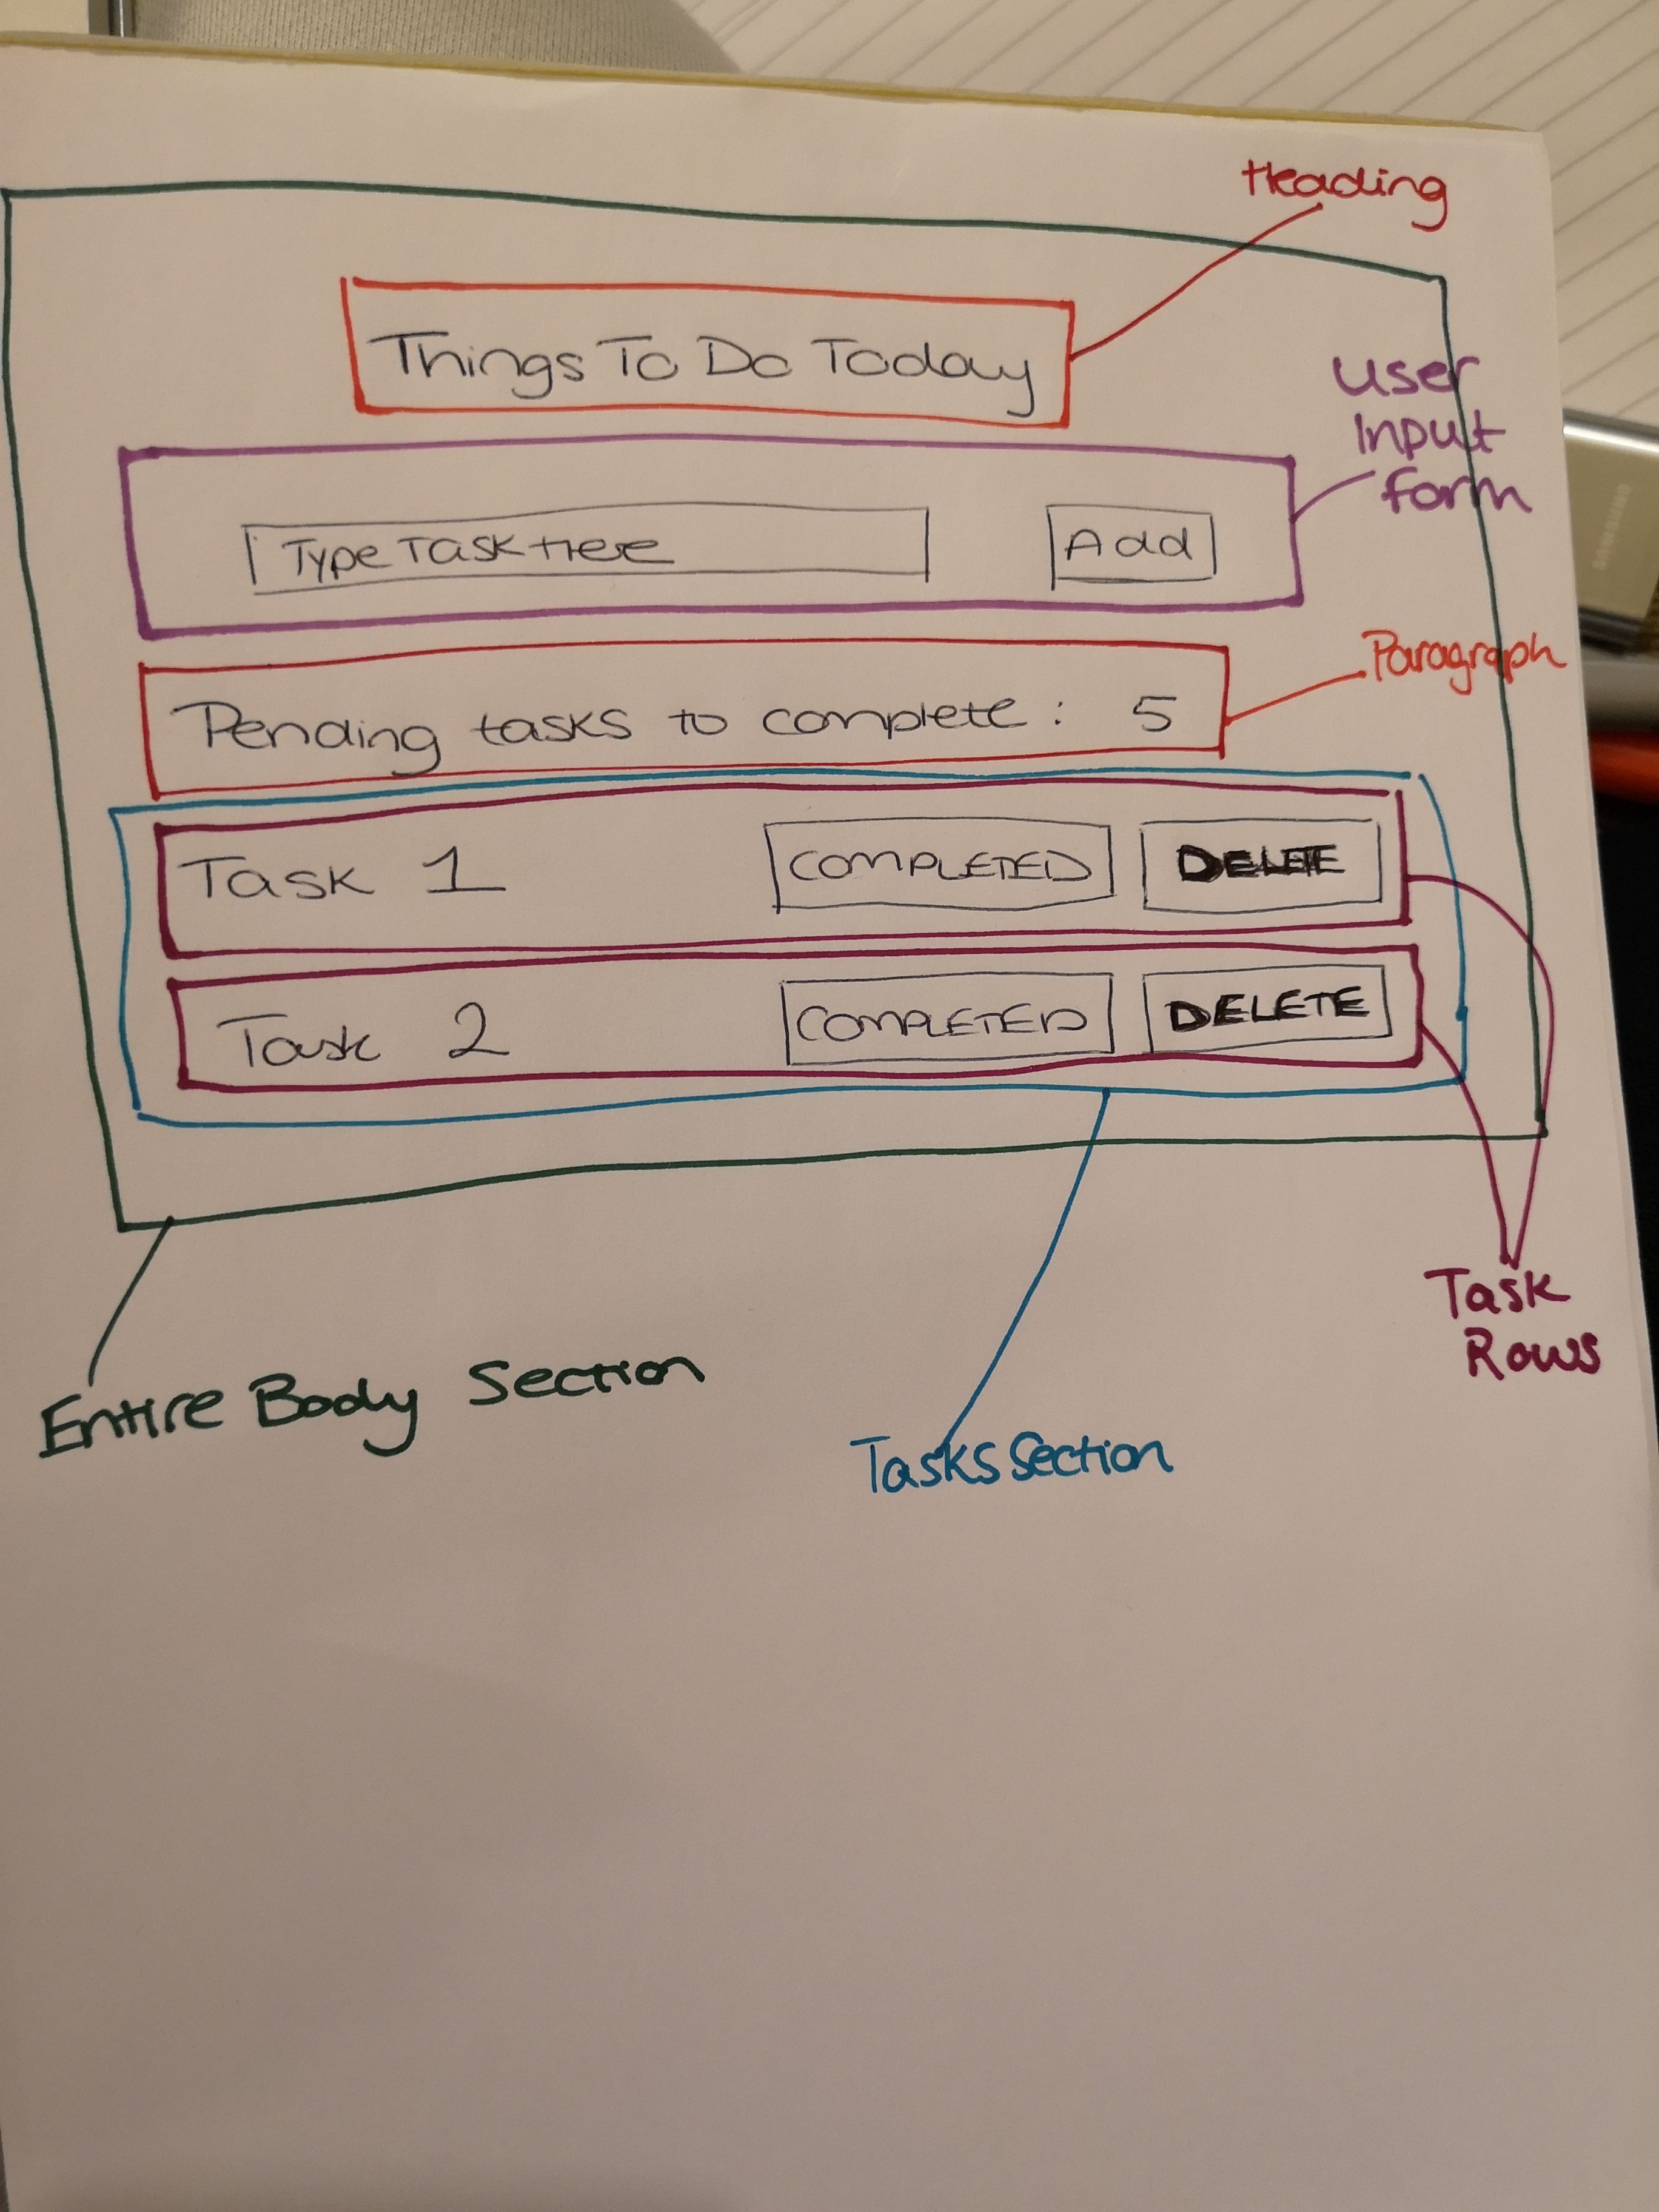 Heading
Things To Do Today
User
Input
form
Type Task Here
Add
Paragraph
Pending tasks to complete : 5
Task 1 COMPLETED DELETE
Task 2 COMPLETED DELETE
Task
Rows
Entire Body Section
Tasks Section
SAMSUNG